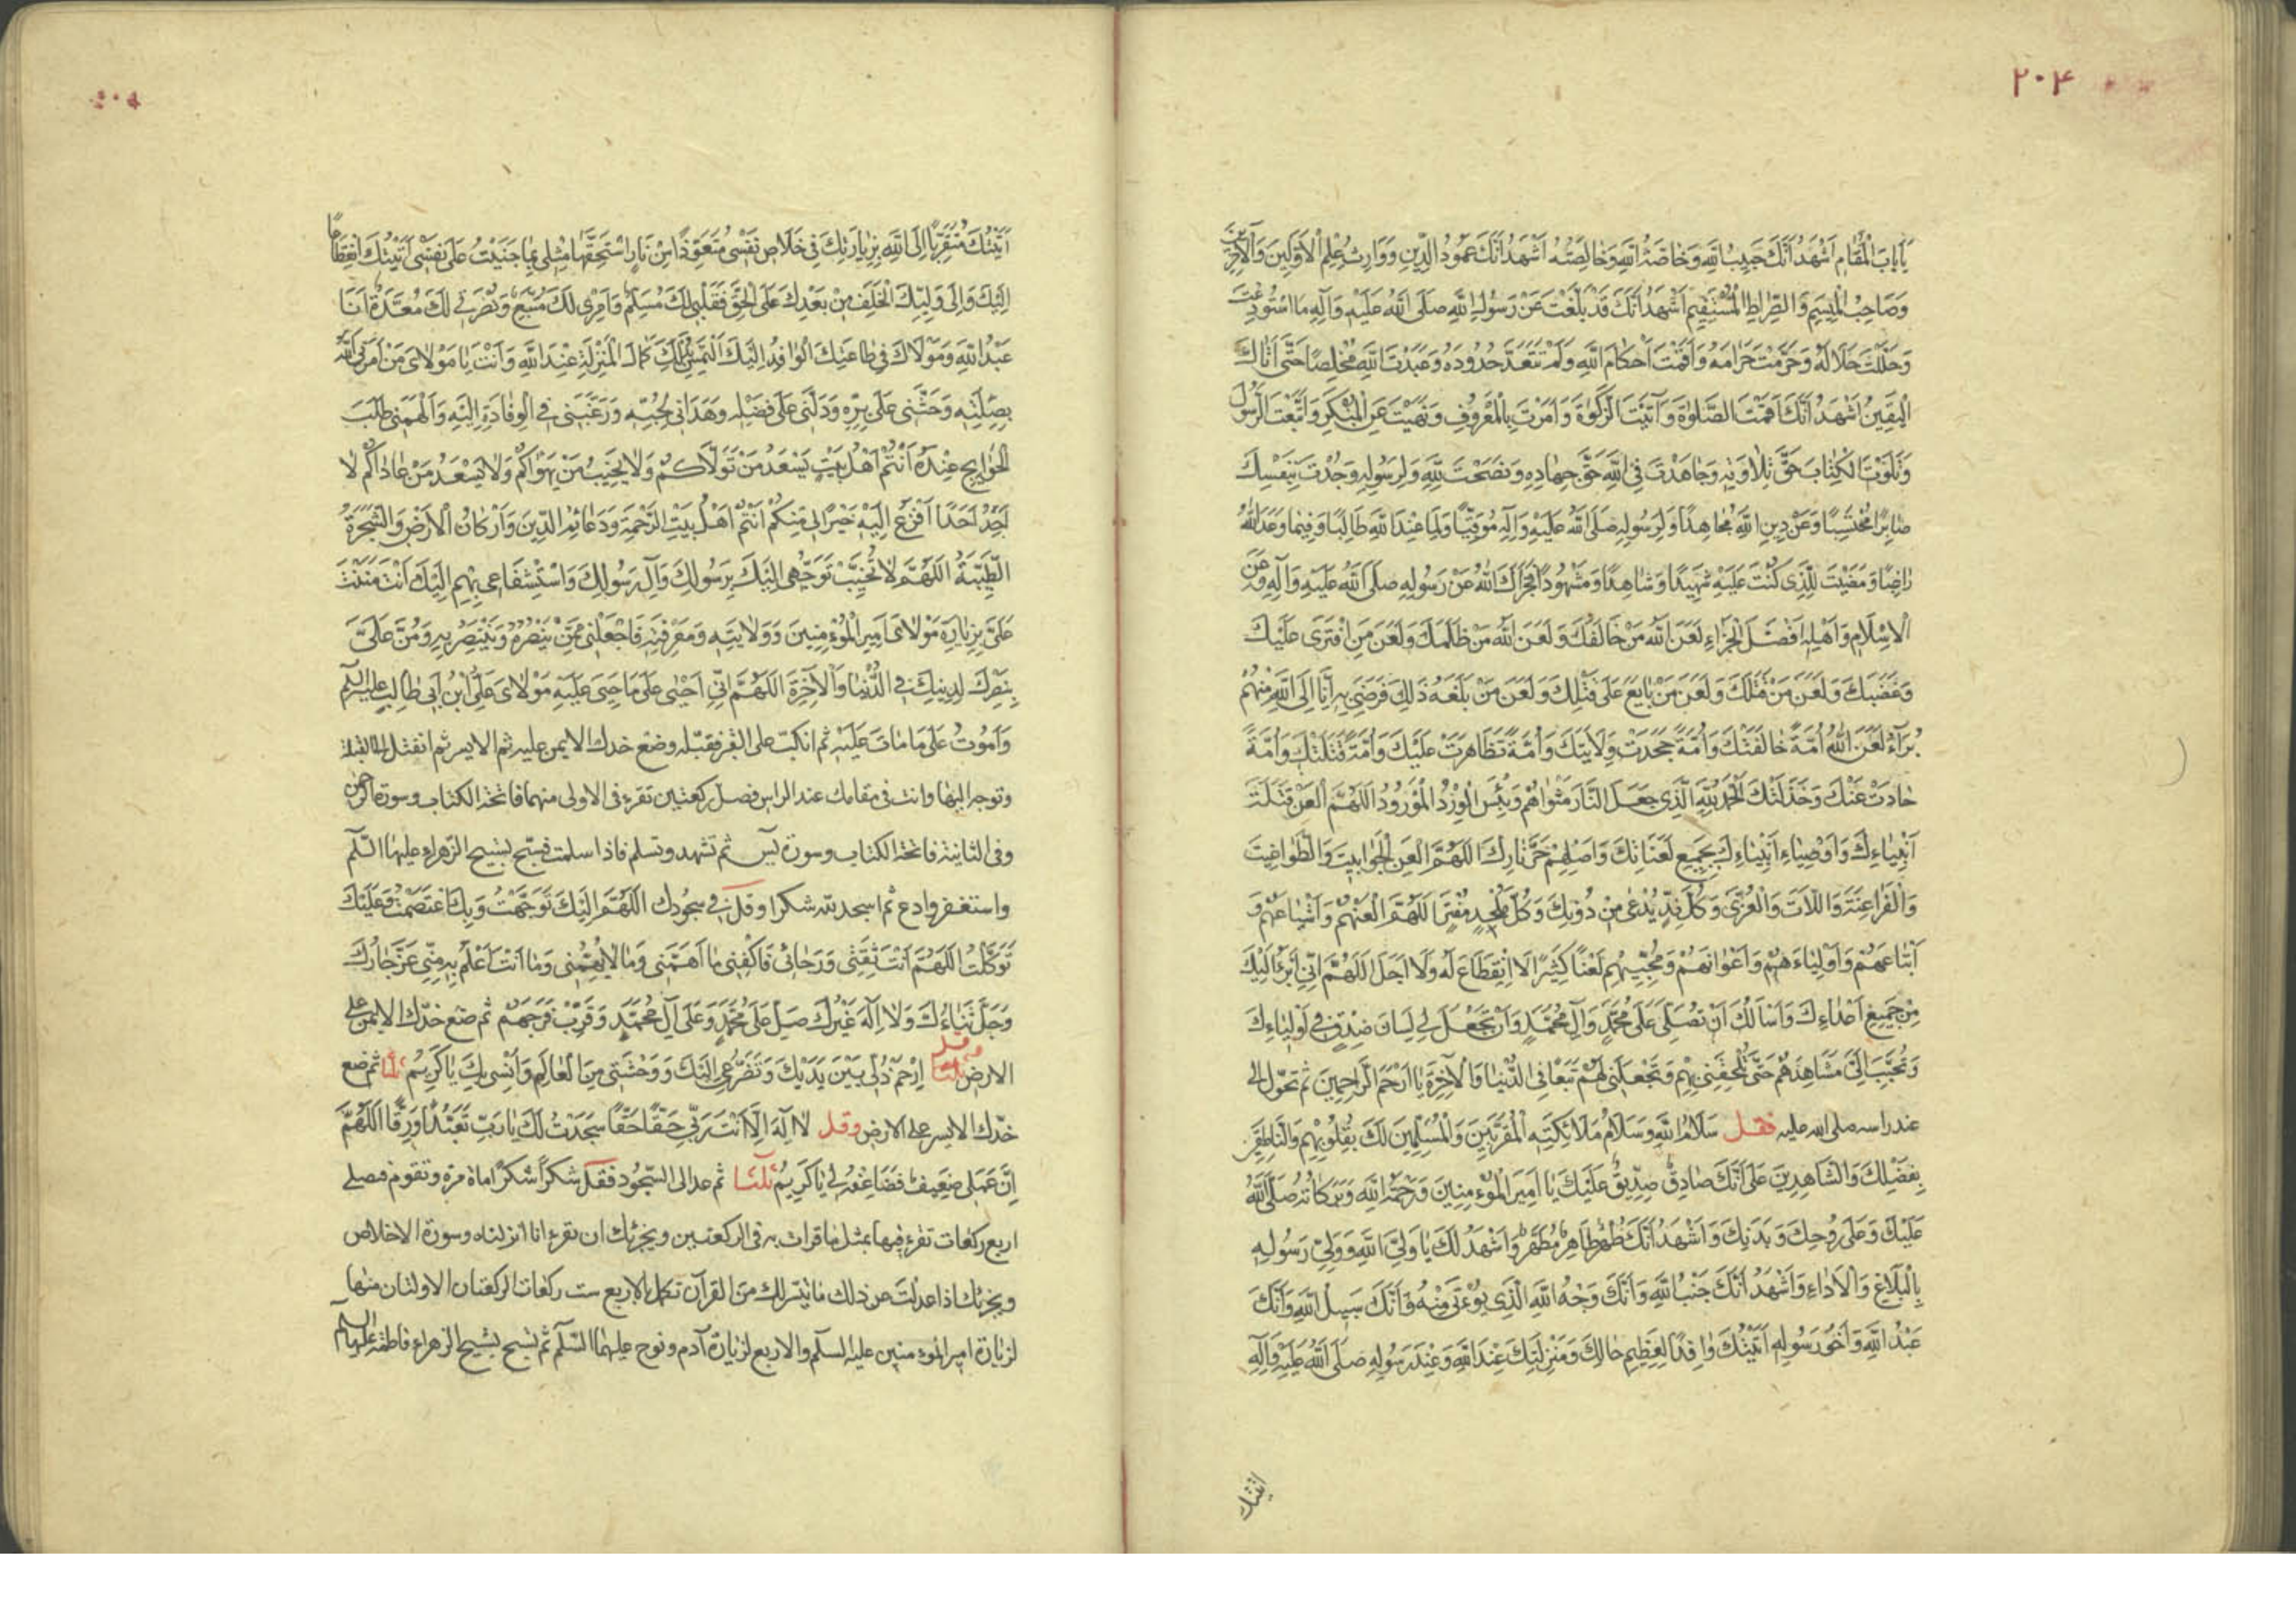 ٢٠۴
يَا بَابَ الْمَقَامِ اَشْهَدُ اَنَّكَ حَبِيبُ اللّٰهِ وَخَاصَّةُ اللّٰهِ وَخَالِصَتُهُ اَشْهَدُ اَنَّكَ عَمُودُ الدِّينِ وَوَارِثُ عِلْمِ الْاَوَّلِينَ وَالْآخِرِينَ
وَصَاحِبُ الْمِيسَمِ وَالصِّرَاطِ الْمُسْتَقِيمِ اَشْهَدُ اَنَّكَ قَدْ بَلَّغْتَ عَنْ رَسُولِ اللّٰهِ صَلَّى اللّٰهُ عَلَيْهِ وَآلِهِ مَا اسْتُودِعْتَ
وَحَلَّلْتَ حَلَالَهُ وَحَرَّمْتَ حَرَامَهُ وَاَقَمْتَ اَحْكَامَ اللّٰهِ وَلَمْ تَتَعَدَّ حُدُودَهُ وَعَبَدْتَ اللّٰهَ مُخْلِصًا حَتّٰى اَتٰاكَ
الْيَقِينُ اَشْهَدُ اَنَّكَ اَقَمْتَ الصَّلٰوةَ وَآتَيْتَ الزَّكٰوةَ وَاَمَرْتَ بِالْمَعْرُوفِ وَنَهَيْتَ عَنِ الْمُنْكَرِ وَاتَّبَعْتَ الرَّسُولَ
وَتَلَوْتَ الْكِتَابَ حَقَّ تِلَاوَتِهِ وَجَاهَدْتَ فِي اللّٰهِ حَقَّ جِهَادِهِ وَنَصَحْتَ لِلّٰهِ وَلِرَسُولِهِ وَجُدْتَ بِنَفْسِكَ
صَابِرًا مُحْتَسِبًا وَعَنْ دِينِ اللّٰهِ مُجَاهِدًا وَلِرَسُولِهِ صَلَّى اللّٰهُ عَلَيْهِ وَآلِهِ مُوَقِّيًا وَلِمَا عِنْدَ اللّٰهِ طَالِبًا وَفِيمَا وَعَدَ اللّٰهُ
رَاغِبًا وَمَضَيْتَ لِلَّذِي كُنْتَ عَلَيْهِ شَهِيدًا وَشَاهِدًا وَمَشْهُودًا فَجَزَاكَ اللّٰهُ عَنْ رَسُولِهِ صَلَّى اللّٰهُ عَلَيْهِ وَآلِهِ وَعَنِ
الْاِسْلَامِ وَاَهْلِهِ اَفْضَلَ الْجَزَاءِ لَعَنَ اللّٰهُ مَنْ خَالَفَكَ وَلَعَنَ اللّٰهُ مَنْ ظَلَمَكَ وَلَعَنَ مَنِ افْتَرَى عَلَيْكَ
وَغَصَبَكَ وَلَعَنَ مَنْ قَتَلَكَ وَلَعَنَ مَنْ بَايَعَ عَلَى قَتْلِكَ وَلَعَنَ مَنْ بَلَغَهُ ذٰلِكَ فَرَضِيَ بِهِ اَنَا اِلَى اللّٰهِ مِنْهُمْ
بُرَآءُ لَعَنَ اللّٰهُ اُمَّةً خَالَفَتْكَ وَاُمَّةً جَحَدَتْ وِلَايَتَكَ وَاُمَّةً تَظَاهَرَتْ عَلَيْكَ وَاُمَّةً قَتَلَتْكَ وَاُمَّةً
حَادَتْ عَنْكَ وَخَذَلَتْكَ الْحَمْدُ لِلّٰهِ الَّذِي جَعَلَ النَّارَ مَثْوَاهُمْ وَبِئْسَ الْوِرْدُ الْمَوْرُودُ اَللّٰهُمَّ الْعَنْ قَتَلَةَ
اَنْبِيَاءِكَ وَاَوْصِيَاءِ اَنْبِيَاءِكَ بِجَمِيعِ لَعَنَاتِكَ وَاَصْلِهِمْ حَرَّ نَارِكَ اَللّٰهُمَّ الْعَنِ الْجَوَابِيتَ وَالطَّوَاغِيتَ
وَالْفَرَاعِنَةَ وَاللَّاتَ وَالْعُزّٰى وَكُلَّ نِدٍّ يُدْعٰى مِنْ دُونِكَ وَكُلَّ مُلْحِدٍ مُفْتَرٍ اَللّٰهُمَّ الْعَنْهُمْ وَاَشْيَاعَهُمْ وَ
اَتْبَاعَهُمْ وَاَوْلِيَاءَهُمْ وَاَعْوَانَهُمْ وَمُحِبِّيهِمْ لَعْنًا كَثِيرًا لَا انْقِطَاعَ لَهُ وَلَا اَجَلَ اَللّٰهُمَّ اِنِّي اَبْرَأُ اِلَيْكَ
مِنْ جَمِيعِ اَعْدَاءِكَ وَاَسْاَلُكَ اَنْ تُصَلِّيَ عَلَى مُحَمَّدٍ وَآلِ مُحَمَّدٍ وَاَنْ تَجْعَلَ لِي لِسَانَ صِدْقٍ فِي اَوْلِيَاءِكَ
وَتُحَبِّبَ اِلَيَّ مَشَاهِدَهُمْ حَتّٰى تُلْحِقَنِي بِهِمْ وَتَجْعَلَنِي لَهُمْ تَبَعًا فِي الدُّنْيَا وَالْآخِرَةِ يَا اَرْحَمَ الرَّاحِمِينَ ثم تحوّل الى
عند راسه صلى الله عليه فقل سَلَامُ اللّٰهِ وَسَلَامُ مَلَائِكَتِهِ الْمُقَرَّبِينَ وَالْمُسَلِّمِينَ لَكَ بِقُلُوبِهِمْ وَالنَّاطِقِينَ
بِفَضْلِكَ وَالشَّاهِدِينَ عَلَى اَنَّكَ صَادِقٌ صِدِّيقٌ عَلَيْكَ يَا اَمِيرَ الْمُؤْمِنِينَ وَرَحْمَةُ اللّٰهِ وَبَرَكَاتُهُ صَلَّى اللّٰهُ
عَلَيْكَ وَعَلَى رُوحِكَ وَبَدَنِكَ وَاَشْهَدُ اَنَّكَ طُهْرٌ طَاهِرٌ مُطَهَّرٌ وَاَشْهَدُ لَكَ يَا وَلِيَّ اللّٰهِ وَوَلِيَّ رَسُولِهِ
بِالْبَلَاغِ وَالْاَدَاءِ وَاَشْهَدُ اَنَّكَ جَنْبُ اللّٰهِ وَاَنَّكَ وَجْهُ اللّٰهِ الَّذِي يُؤْتٰى مِنْهُ وَاَنَّكَ سَبِيلُ اللّٰهِ وَاَنَّكَ
عَبْدُ اللّٰهِ وَاَخُو رَسُولِهِ اَتَيْتُكَ وَافِدًا لِعَظِيمِ حَالِكَ وَمَنْزِلَتِكَ عِنْدَ اللّٰهِ وَعِنْدَ رَسُولِهِ صَلَّى اللّٰهُ عَلَيْهِ وَآلِهِ
اتيتك
اَتَيْتُكَ مُتَقَرِّبًا اِلَى اللّٰهِ بِزِيَارَتِكَ فِي خَلَاصِ نَفْسِي مُتَعَوِّذًا مِنْ نَارٍ اسْتَحَقَّهَا مِثْلِي بِمَا جَنَيْتُ عَلَى نَفْسِي اَتَيْتُكَ انْقِطَاعًا
اِلَيْكَ وَاِلَى وَلِيِّكَ الْخَلَفِ مِنْ بَعْدِكَ عَلَى الْحَقِّ فَقَلْبِي لَكَ مُسَلِّمٌ وَاَمْرِي لَكَ مُتَّبِعٌ وَنُصْرَتِي لَكَ مُعَدَّةٌ اَنَا
عَبْدُ اللّٰهِ وَمَوْلَاكَ فِي طَاعَتِكَ الْوَافِدُ اِلَيْكَ اَلْتَمِسُ بِذٰلِكَ كَمَالَ الْمَنْزِلَةِ عِنْدَ اللّٰهِ وَاَنْتَ يَا مَوْلَايَ مَنْ اَمَرَنِي اللّٰهُ
بِصِلَتِهِ وَحَثَّنِي عَلَى بِرِّهِ وَدَلَّنِي عَلَى فَضْلِهِ وَهَدَانِي لِحُبِّهِ وَرَغَّبَنِي فِي الْوِفَادَةِ اِلَيْهِ وَاَلْهَمَنِي طَلَبَ
الْحَوَايِجِ عِنْدَهُ اَنْتُمْ اَهْلُ بَيْتٍ يَسْعَدُ مَنْ تَوَلَّاكُمْ وَلَا يَخِيبُ مَنْ يَهْوَاكُمْ وَلَا يَسْعَدُ مَنْ عَادَاكُمْ لَا
اَجِدُ اَحَدًا اَفْزَعُ اِلَيْهِ خَيْرًا لِي مِنْكُمْ اَنْتُمْ اَهْلُ بَيْتِ الرَّحْمَةِ وَدَعَائِمُ الدِّينِ وَاَرْكَانُ الْاَرْضِ وَالشَّجَرَةُ
الطَّيِّبَةُ اَللّٰهُمَّ لَا تُخَيِّبْ تَوَجُّهِي اِلَيْكَ بِرَسُولِكَ وَآلِ رَسُولِكَ وَاسْتِشْفَاعِي بِهِمْ اِلَيْكَ اَنْتَ مَنَنْتَ
عَلَيَّ بِزِيَارَةِ مَوْلَايَ اَمِيرِ الْمُؤْمِنِينَ وَوِلَايَتِهِ وَمَعْرِفَتِهِ فَاجْعَلْنِي مِمَّنْ يَنْصُرُهُ وَيَنْتَصِرُ بِهِ وَمُنَّ عَلَيَّ
بِنَصْرِكَ لِدِينِكَ فِي الدُّنْيَا وَالْآخِرَةِ اَللّٰهُمَّ اِنِّي اَحْيٰى عَلَى مَا حَيِيَ عَلَيْهِ مَوْلَايَ عَلِيُّ ابْنُ اَبِي طَالِبٍ عليه السلم
وَاَمُوتُ عَلَى مَا مَاتَ عَلَيْهِ ثم انكبّ على القبر فقبّله وضع خدك الايمن عليه ثم الايسر ثم انفتل الى القبلة
وتوجه اليها وانت في مقامك عند الراس فصل ركعتين تقرء في الاولى منهما فاتحة الكتاب وسورة الرحمن
وفي الثانية فاتحة الكتاب وسورة يس ثم تشهد وتسلم فاذا سلمت فسبّح تسبيح الزهراء عليها السلم
واستغفر وادع ثم اسجد لله شكرا وقل في سجودك اَللّٰهُمَّ اِلَيْكَ تَوَجَّهْتُ وَبِكَ اعْتَصَمْتُ وَعَلَيْكَ
تَوَكَّلْتُ اَللّٰهُمَّ اَنْتَ ثِقَتِي وَرَجَائِي فَاكْفِنِي مَا اَهَمَّنِي وَمَا لَا يُهِمُّنِي وَمَا اَنْتَ اَعْلَمُ بِهِ مِنِّي عَزَّ جَارُكَ
وَجَلَّ ثَنَاءُكَ وَلَا اِلٰهَ غَيْرُكَ صَلِّ عَلَى مُحَمَّدٍ وَعَلَى آلِ مُحَمَّدٍ وَقَرِّبْ فَرَجَهُمْ ثم ضع خدّك الايمن على
الارض وقل ثلثا اِرْحَمْ ذُلِّي بَيْنَ يَدَيْكَ وَتَضَرُّعِي اِلَيْكَ وَوَحْشَتِي مِنَ الْعَالَمِ وَاُنْسِي بِكَ يَا كَرِيمُ ثلثا ثم ضع
خدّك الايسر على الارض وقل لَا اِلٰهَ اِلَّا اَنْتَ رَبِّي حَقًّا حَقًّا سَجَدْتُ لَكَ يَا رَبِّ تَعَبُّدًا وَرِقًّا اَللّٰهُمَّ
اِنَّ عَمَلِي ضَعِيفٌ فَضَاعِفْهُ لِي يَا كَرِيمُ ثلثا ثم عد الى السّجود فقل شكرًا شكرًا ماة مرة وتقوم فصلى
اربع ركعات تقرء فيها بمثل ما قرات به في الركعتين ويجزئك ان تقرء انا انزلناه وسورة الاخلاص
ويجزئك اذا عدلت عن ذلك ما تيسّر لك من القرآن تكمل بالاربع ست ركعات الركعتان الاولتان منها
لزيارة امير المؤمنين عليه السلم والاربع لزيارة آدم ونوح عليهما السّلم ثم تسبح تسبيح الزهراء فاطمة عليها السلم